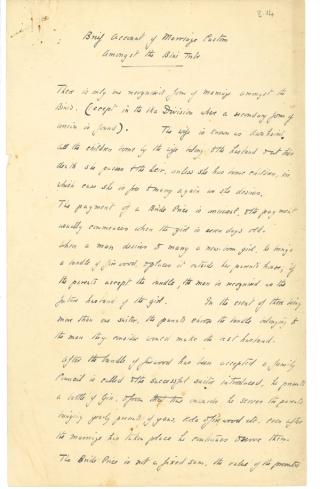 214
Brief Account of Marriage Custom
Amongst the Bini Tribe
There is only one recognised form of marriage amongst the
Binis. (except in the Ika Division where a secondary form of
union is found). The wife is known as
all the children borne by the wife belong to the husband & at his
death she passes to the heir, unless she has borne children, in
which case she is free to marry again as she desires.
The payment of a Bride Price is universal, & the payment
usually commences when the girl is seven days old.
When a man desires to marry a new-born girl, he brings
a bundle of firewood, & places it outside her parents house, if
the parents accept the bundle, the man is recognised as the
future husband of the girl. In the event of there being
more than one suitor, the parents choose the bundle belonging to
the man they consider would make the best husband.
After the bundle of firewood has been accepted a family
Council is called & the successful suitor introduced, he presents
a bottle of Gin, & from this onwards he serves the parents
bringing yearly presents of yams, oil & firewood etc. even after
the marriage has taken place he continues to serve them.
The Bride Price is not a fixed sum, the value of the presents